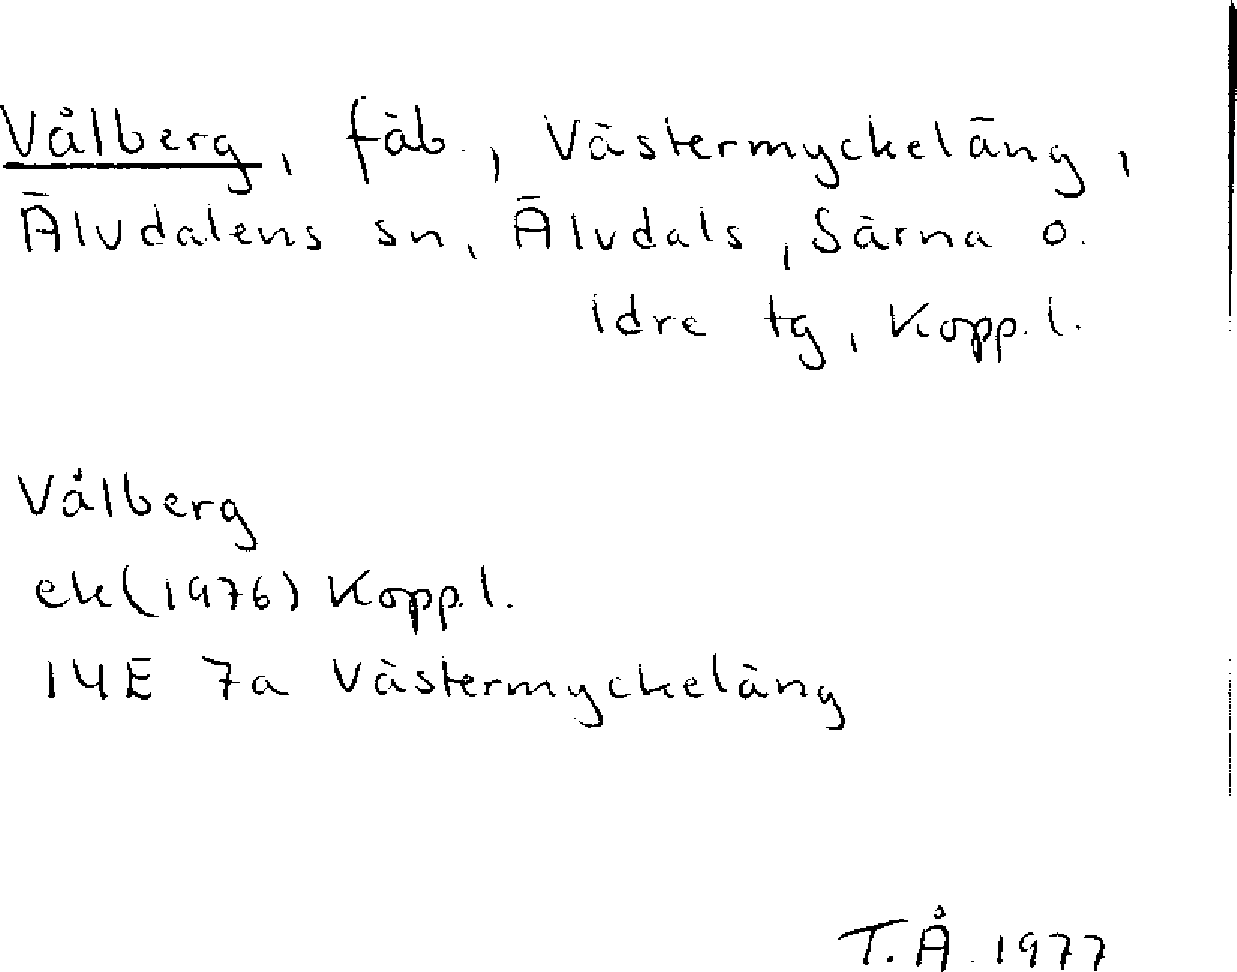 Vålberg, fäb., Västermyckeläng,
Älvdalens sn, Älvdals, Särna o.
Idre tg, Kopp. l.
Vålberg
ek (1976) Kopp. l.
14E 7a Västermyckeläng
T.Å. 1977